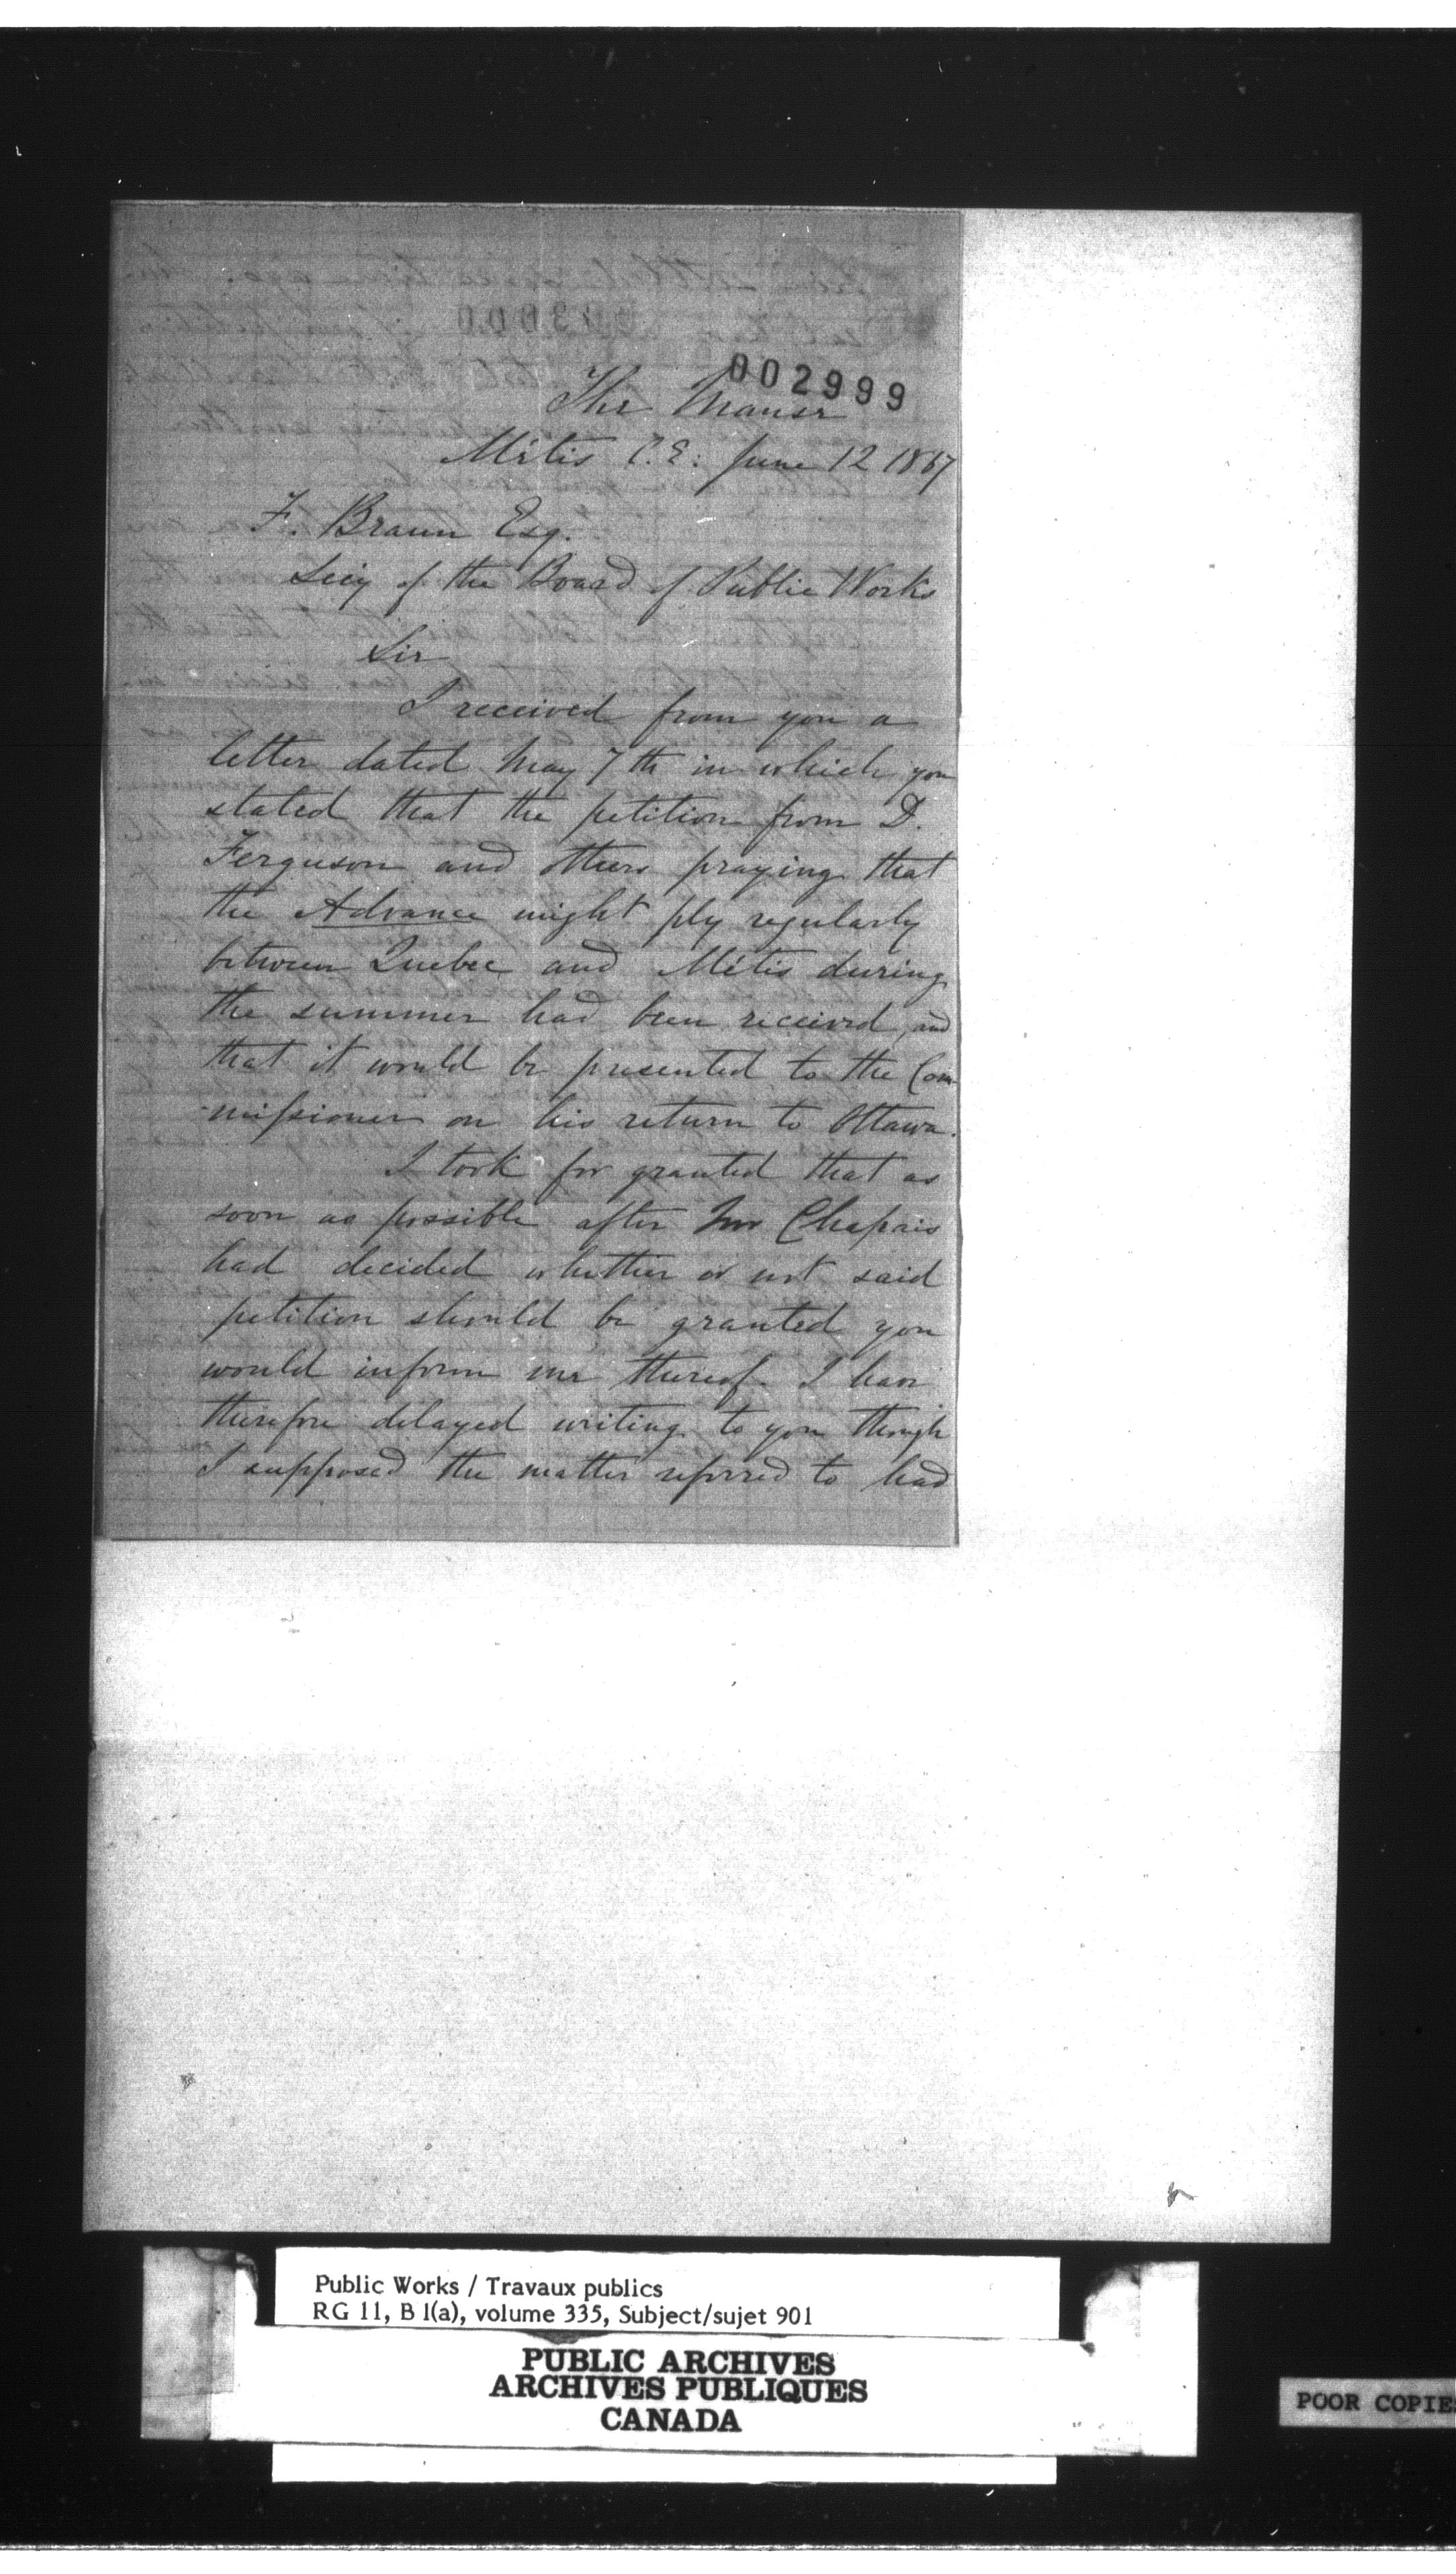 002999
The Manse
Métis C.E. June 12 1867
F. Braun Esq.
Secy of the Board of Public Works
Sir
I received from you a
letter dated May 7th in which you
stated that the petition from D.
Ferguson and others praying that
the Advance might ply regularly
between Quebec and Métis during
the summer had been received, and
that it would be presented to the Com-
missioner on his return to Ottawa.
I took for granted that as
soon as possible after Mr Chapais
had decided whether or not said
petition should be granted you
would inform me thereof. I have
therefore delayed writing to you though
I supposed the matter referred to had
Public Works / Travaux publics
RG 11, B 1(a), volume 335, Subject/sujet 901
PUBLIC ARCHIVES
ARCHIVES PUBLIQUES
CANADA
POOR COPIE